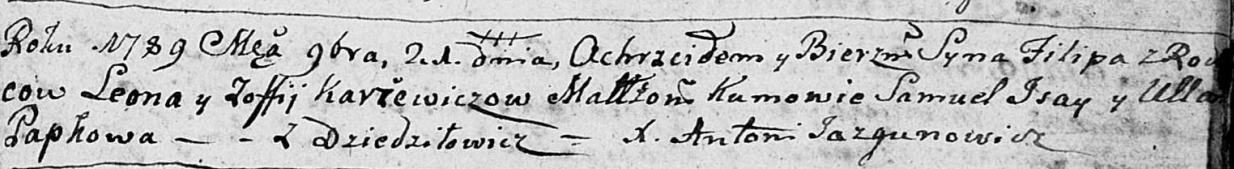 Roku 1789 Mca 9bra, 21. dnia, Ochrzciłem y Bierzm Syna Filipa z Rod
cow Leona y Zoffij Karżewiczow Małżon Kumowie Samuel Isay y Ulla
Papkowa — - Z Dziedziłowicz = X. Antoni Jazgunowicz